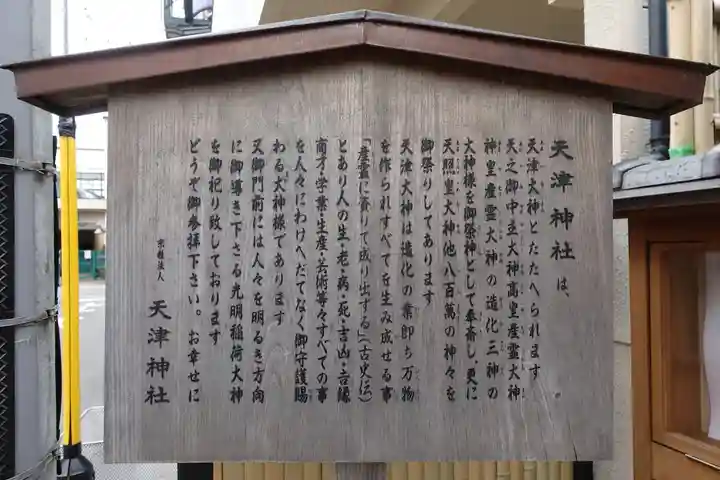 天津神社は、
天津大神とたたへられます
天之御中主大神高皇産霊大神
神皇産霊大神の造化三神の
大神様を御祭神として奉斎し更に
天照皇大神他八百萬の神々を
御祭りしてあります
天津大神は造化の業即ち万物
を作られすべてを生み成せる事
「産霊に資りて成り出する」(古史伝)
とあり人の生・老・病・死・吉凶・吉縁
商才・学業・生産・芸術等々すべての事
を人々にわけへだてなく御守護賜
わる大神様であります
又御門前には人々を明るき方向
に御導き下さる光明稲荷大神
を御祀り致しております
どうぞ御参拝下さい。お幸せに
宗教法人 天津神社